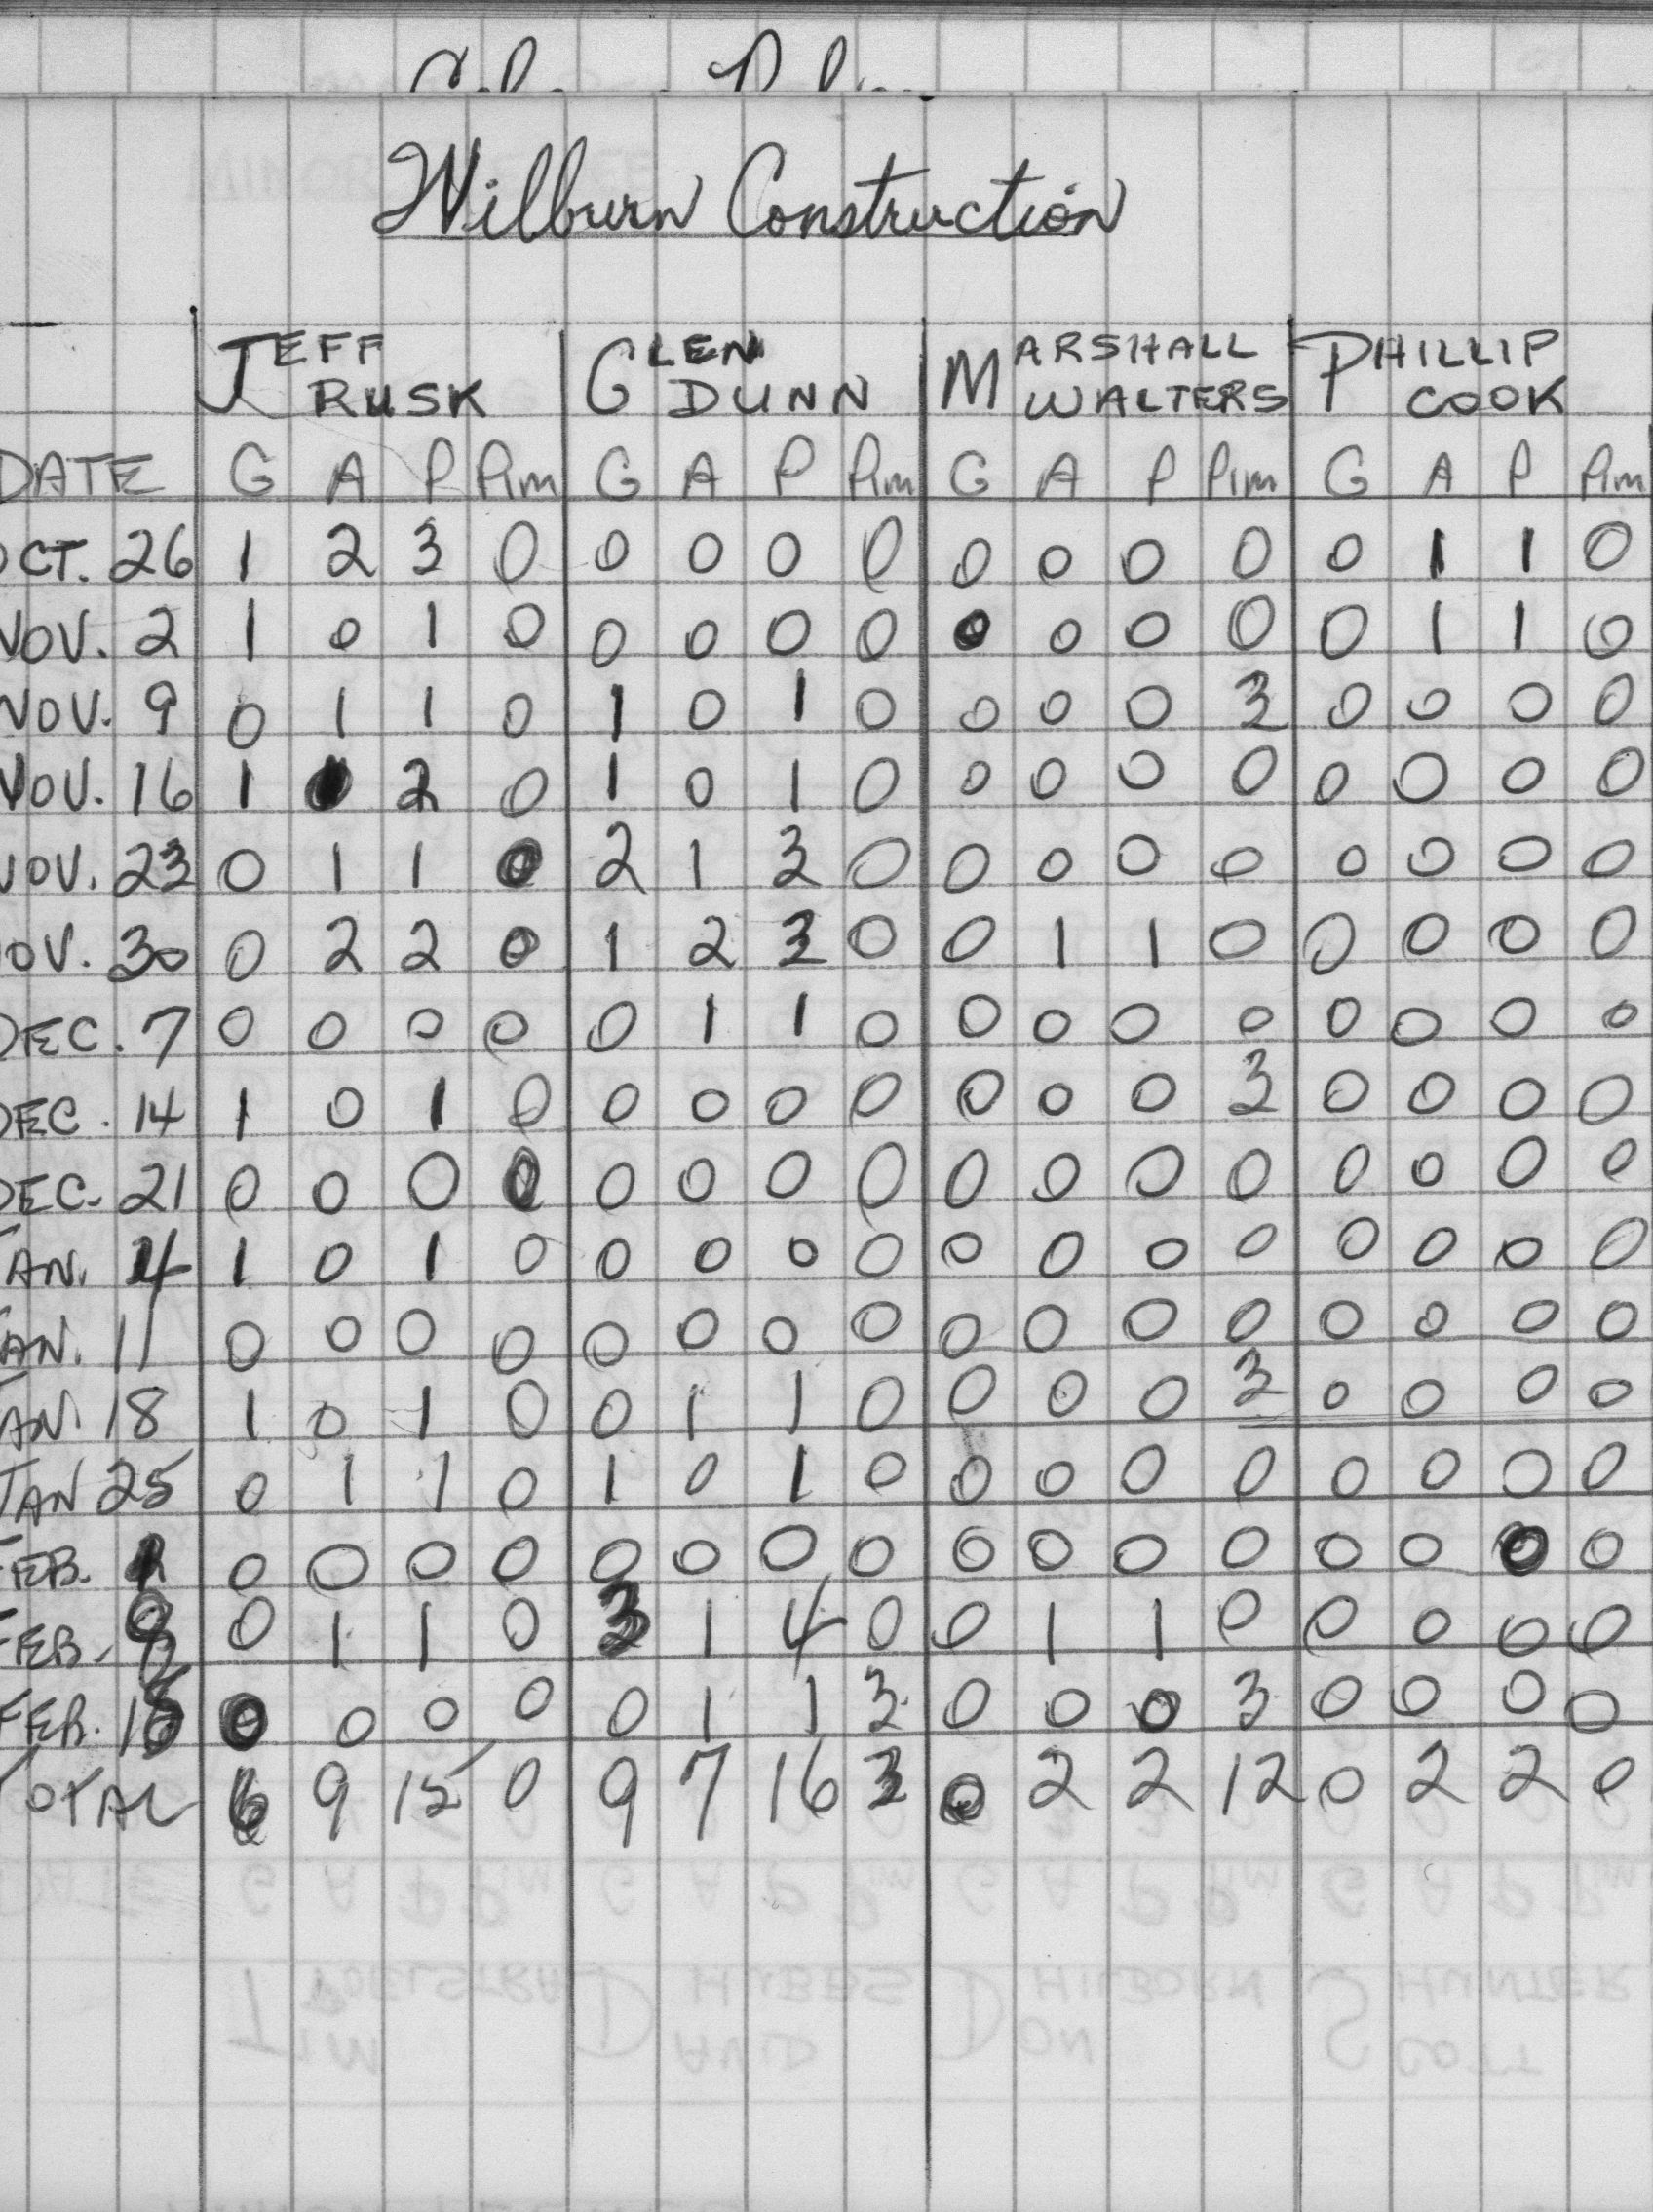 Wilburn Construction
JEFF RUSK GLEN DUNN MARSHALL WALTERS PHILLIP COOK
DATE G A P Pim G A P Pim G A P Pim G A P Pim
OCT. 26 1 2 3 0 0 0 0 0 0 0 0 0 0 1 1 0
NOV. 2 1 0 1 0 0 0 0 0 0 0 0 0 0 1 1 0
NOV. 9 0 1 1 0 1 0 1 0 0 0 0 3 0 0 0 0
NOV. 16 1 1 2 0 1 0 1 0 0 0 0 0 0 0 0 0
NOV. 23 0 1 1 0 2 1 3 0 0 0 0 0 0 0 0 0
NOV. 30 0 2 2 0 1 2 3 0 0 1 1 0 0 0 0 0
DEC. 7 0 0 0 0 0 1 1 0 0 0 0 0 0 0 0 0
DEC. 14 1 0 1 0 0 0 0 0 0 0 0 3 0 0 0 0
DEC. 21 0 0 0 0 0 0 0 0 0 0 0 0 0 0 0 0
JAN. 4 1 0 1 0 0 0 0 0 0 0 0 0 0 0 0 0
JAN. 11 0 0 0 0 0 0 0 0 0 0 0 0 0 0 0 0
JAN. 18 1 0 1 0 0 1 1 0 0 0 0 3 0 0 0 0
JAN 25 0 1 1 0 1 0 1 0 0 0 0 0 0 0 0 0
FEB. 1 0 0 0 0 0 0 0 0 0 0 0 0 0 0 0 0
FEB. 8 0 1 1 0 3 1 4 0 0 1 1 0 0 0 0 0
FEB. 15 0 0 0 0 0 1 1 3 0 0 0 3 0 0 0 0
TOTAL 6 9 15 0 9 7 16 3 0 2 2 12 0 2 2 0